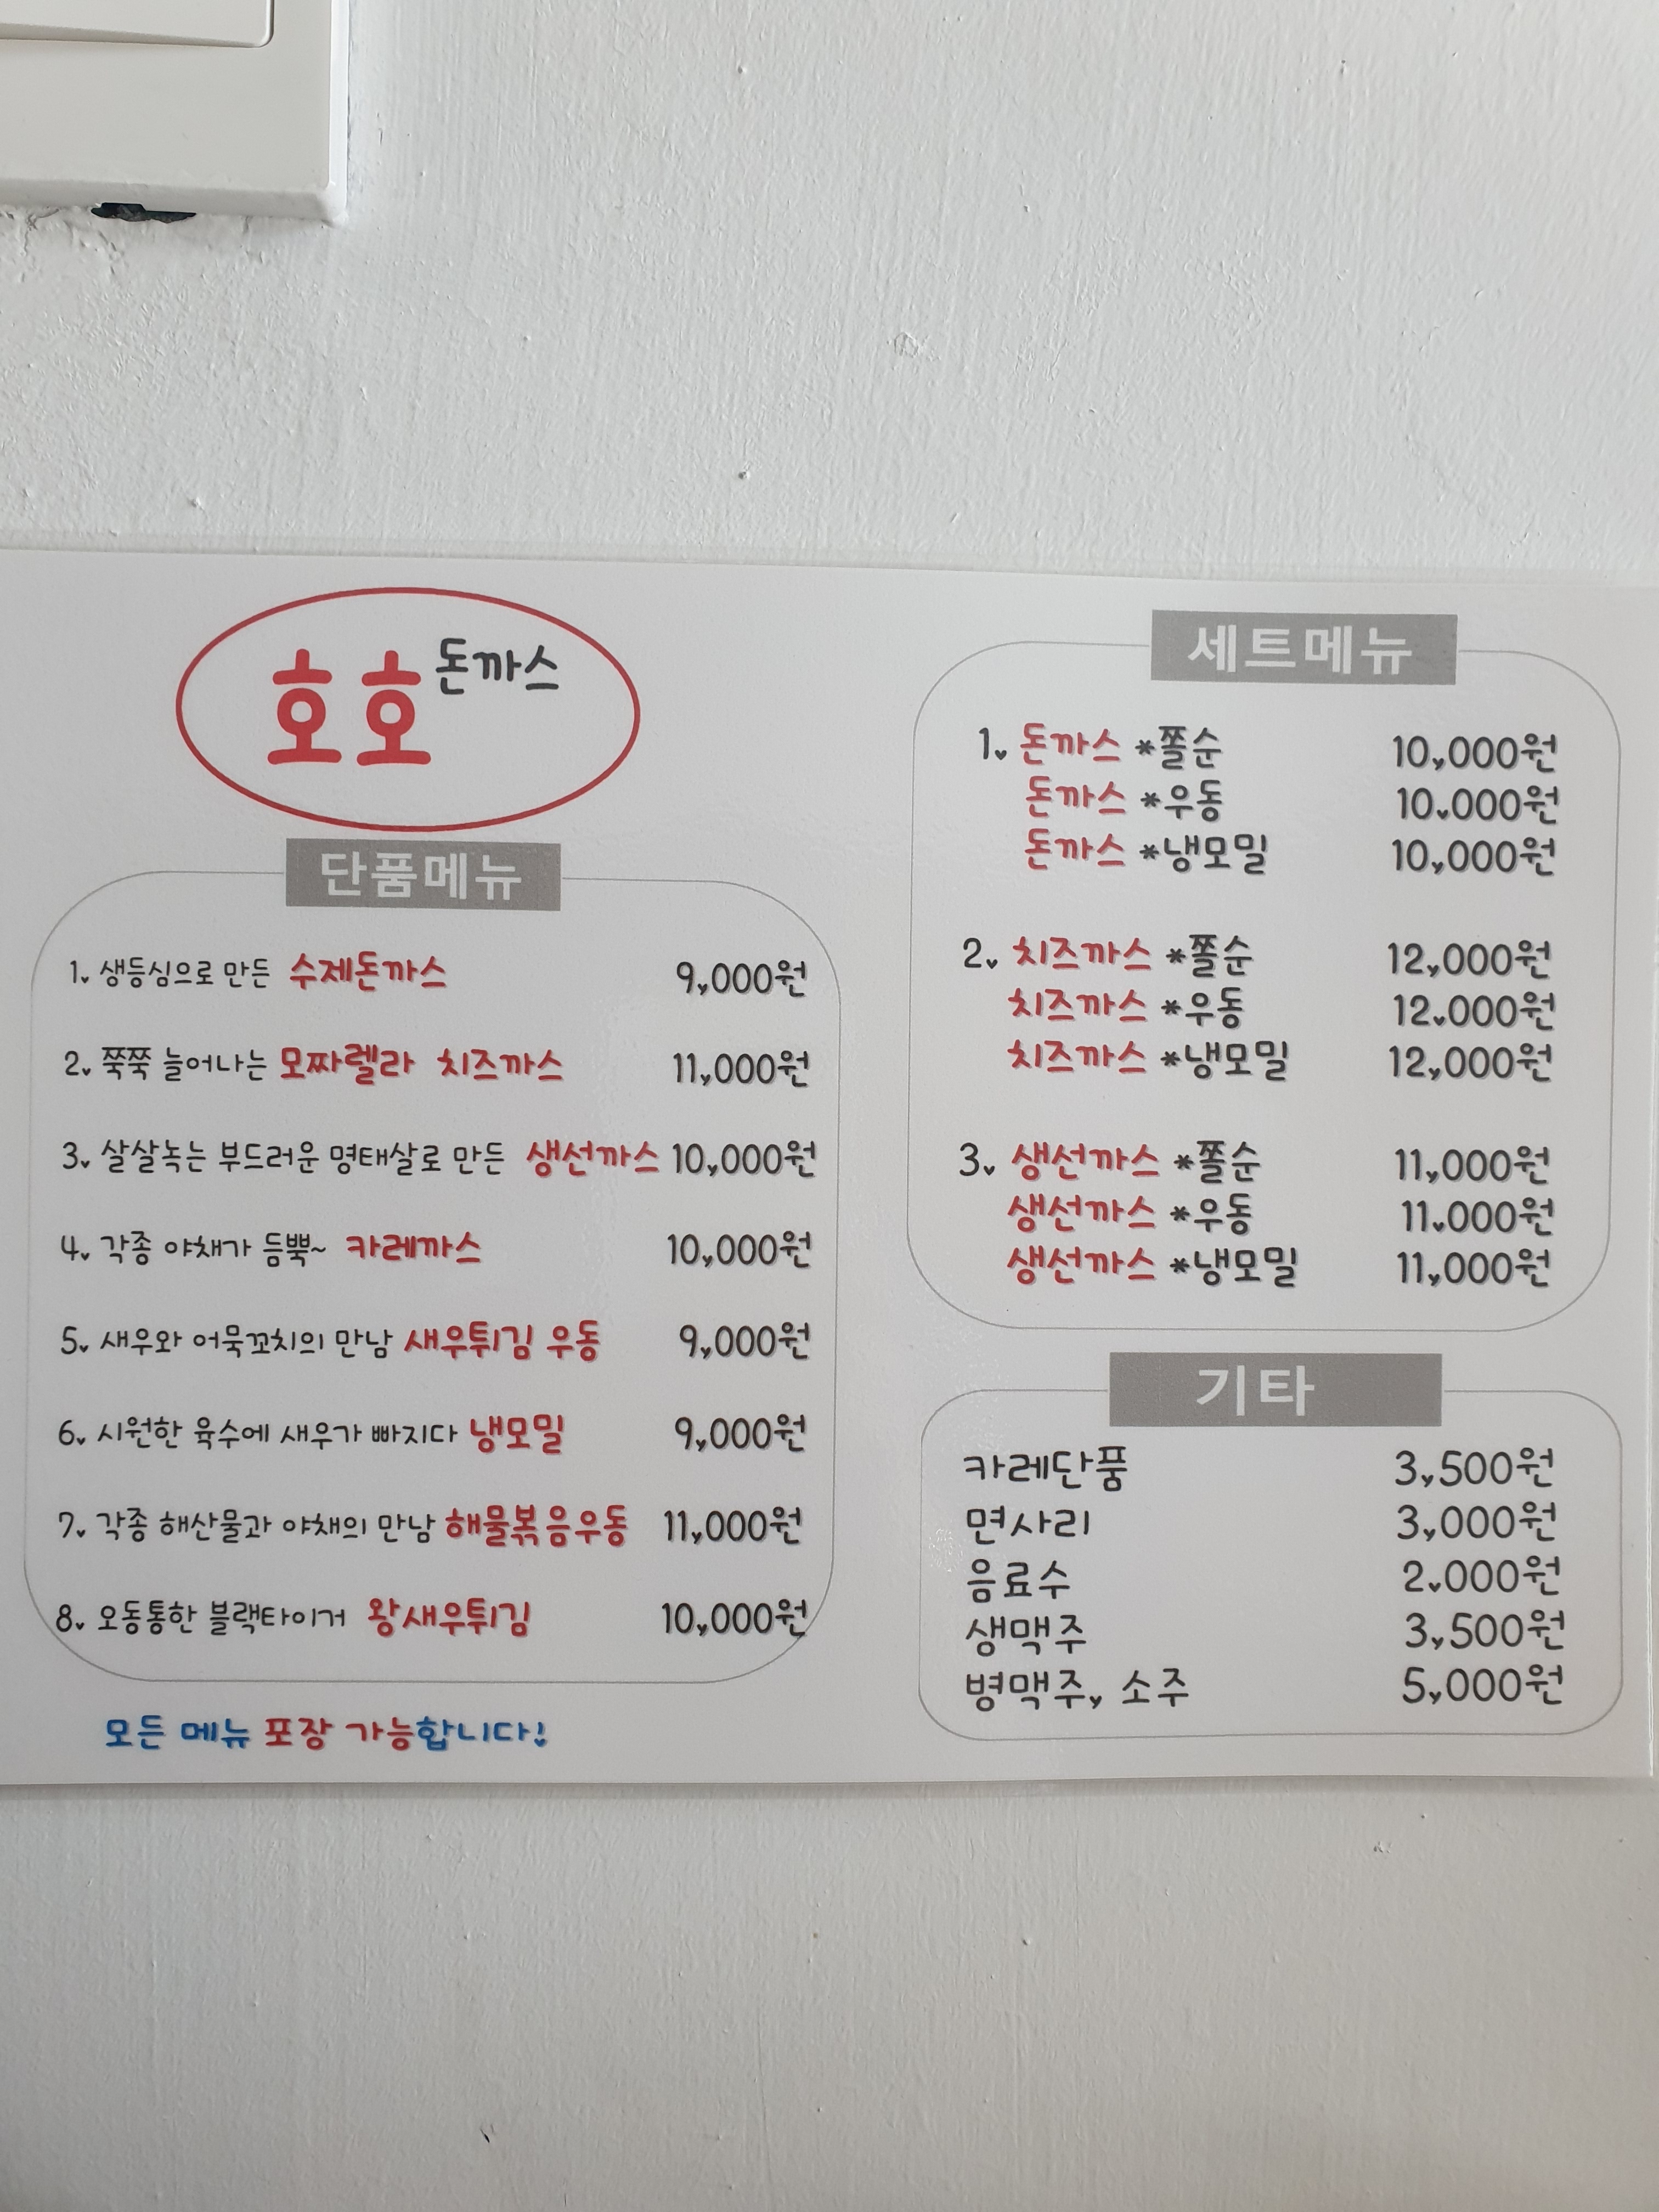 호호돈까스
단품메뉴
1. 생등심으로 만든 수제돈까스 9,000원
2. 쭉쭉 늘어나는 모짜렐라 치즈까스 11,000원
3. 살살녹는 부드러운 명태살로 만든 생선까스 10,000원
4. 각종 야채가 듬뿍~ 카레까스 10,000원
5. 새우와 어묵꼬치의 만남 새우튀김 우동 9,000원
6. 시원한 육수에 새우가 빠지다 냉모밀 9,000원
7. 각종 해산물과 야채의 만남 해물볶음우동 11,000원
8. 오동통한 블랙타이거 왕새우튀김 10,000원
모든 메뉴 포장 가능합니다!
세트메뉴
1. 돈까스 *쫄순 10,000원
돈까스 *우동 10.000원
돈까스 *냉모밀 10,000원
2. 치즈까스 *쫄순 12,000원
치즈까스 *우동 12.000원
치즈까스 *냉모밀 12,000원
3. 생선까스 *쫄순 11,000원
생선까스 *우동 11.000원
생선까스 *냉모밀 11,000원
기타
카레단품 3,500원
면사리 3,000원
음료수 2.000원
생맥주 3,500원
병맥주, 소주 5,000원